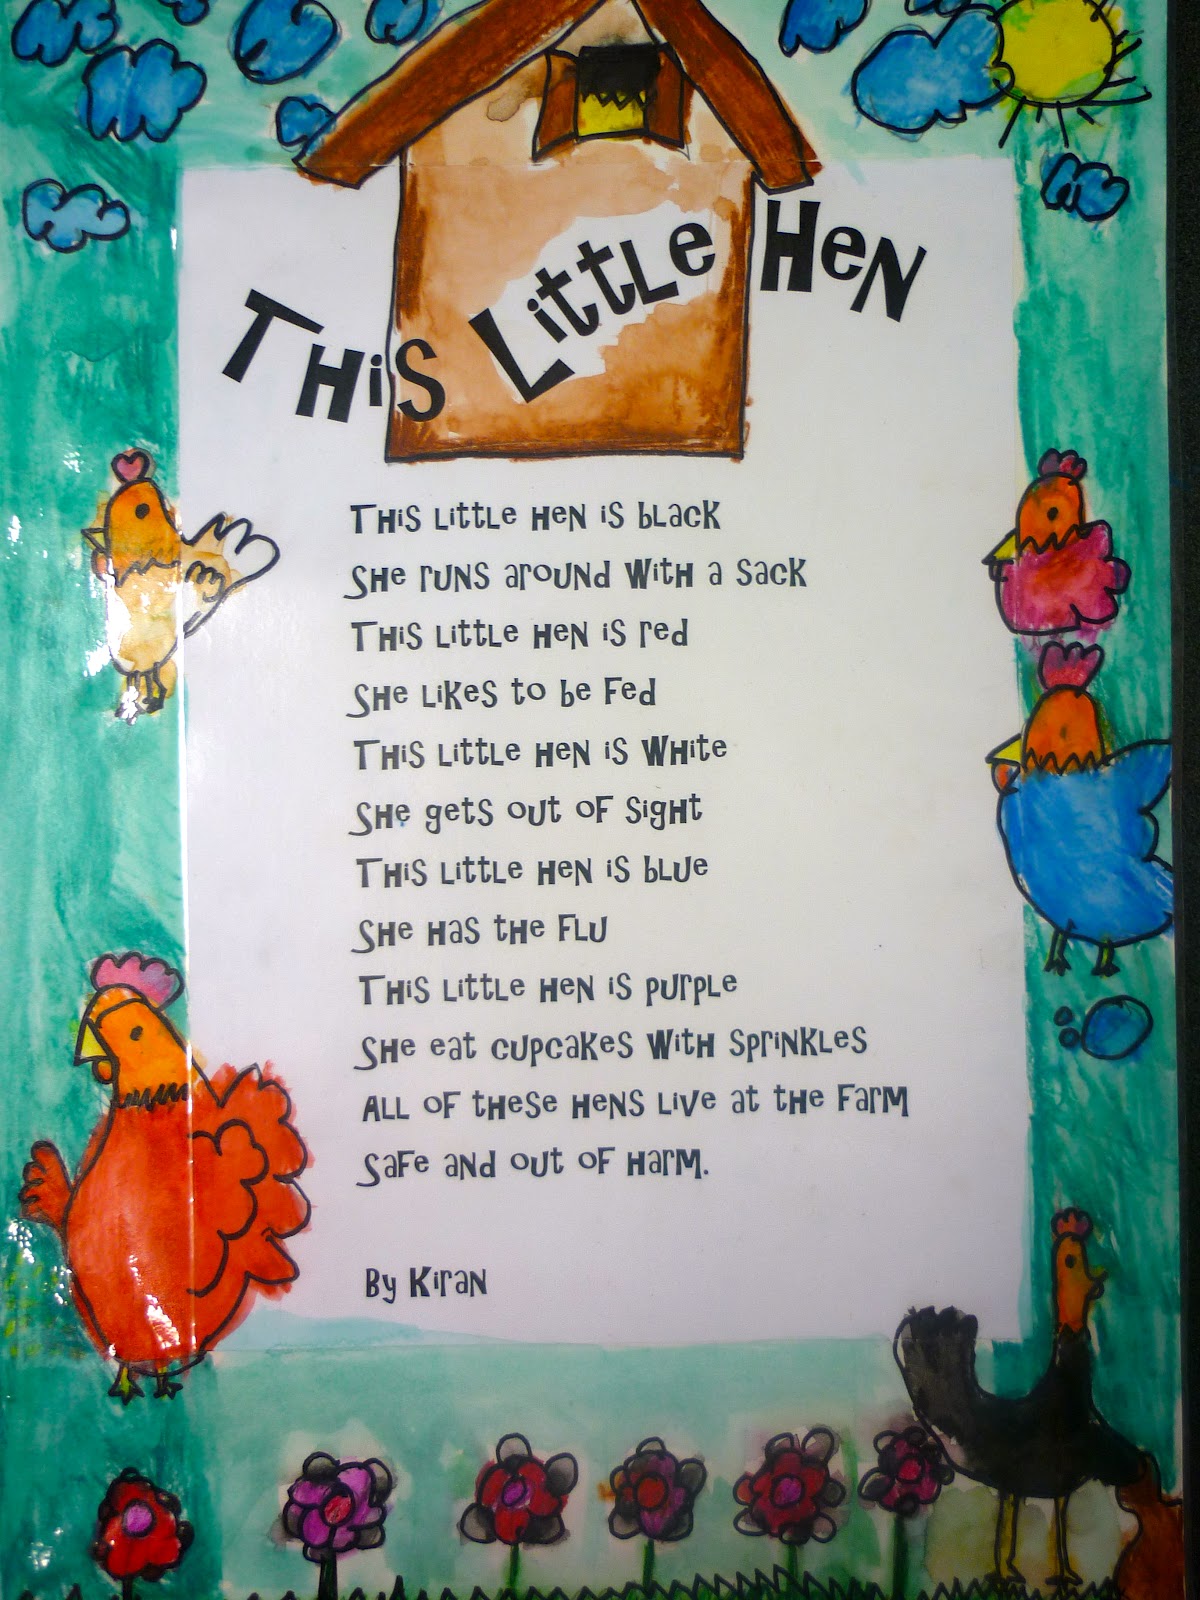 This Little Hen
This little hen is black
She runs around with a sack
This little hen is red
She likes to be fed
This little hen is white
She gets out of sight
This little hen is blue
She has the flu
This little hen is purple
She eat cupcakes with sprinkles
All of these hens live at the farm
Safe and out of harm.
By Kiran